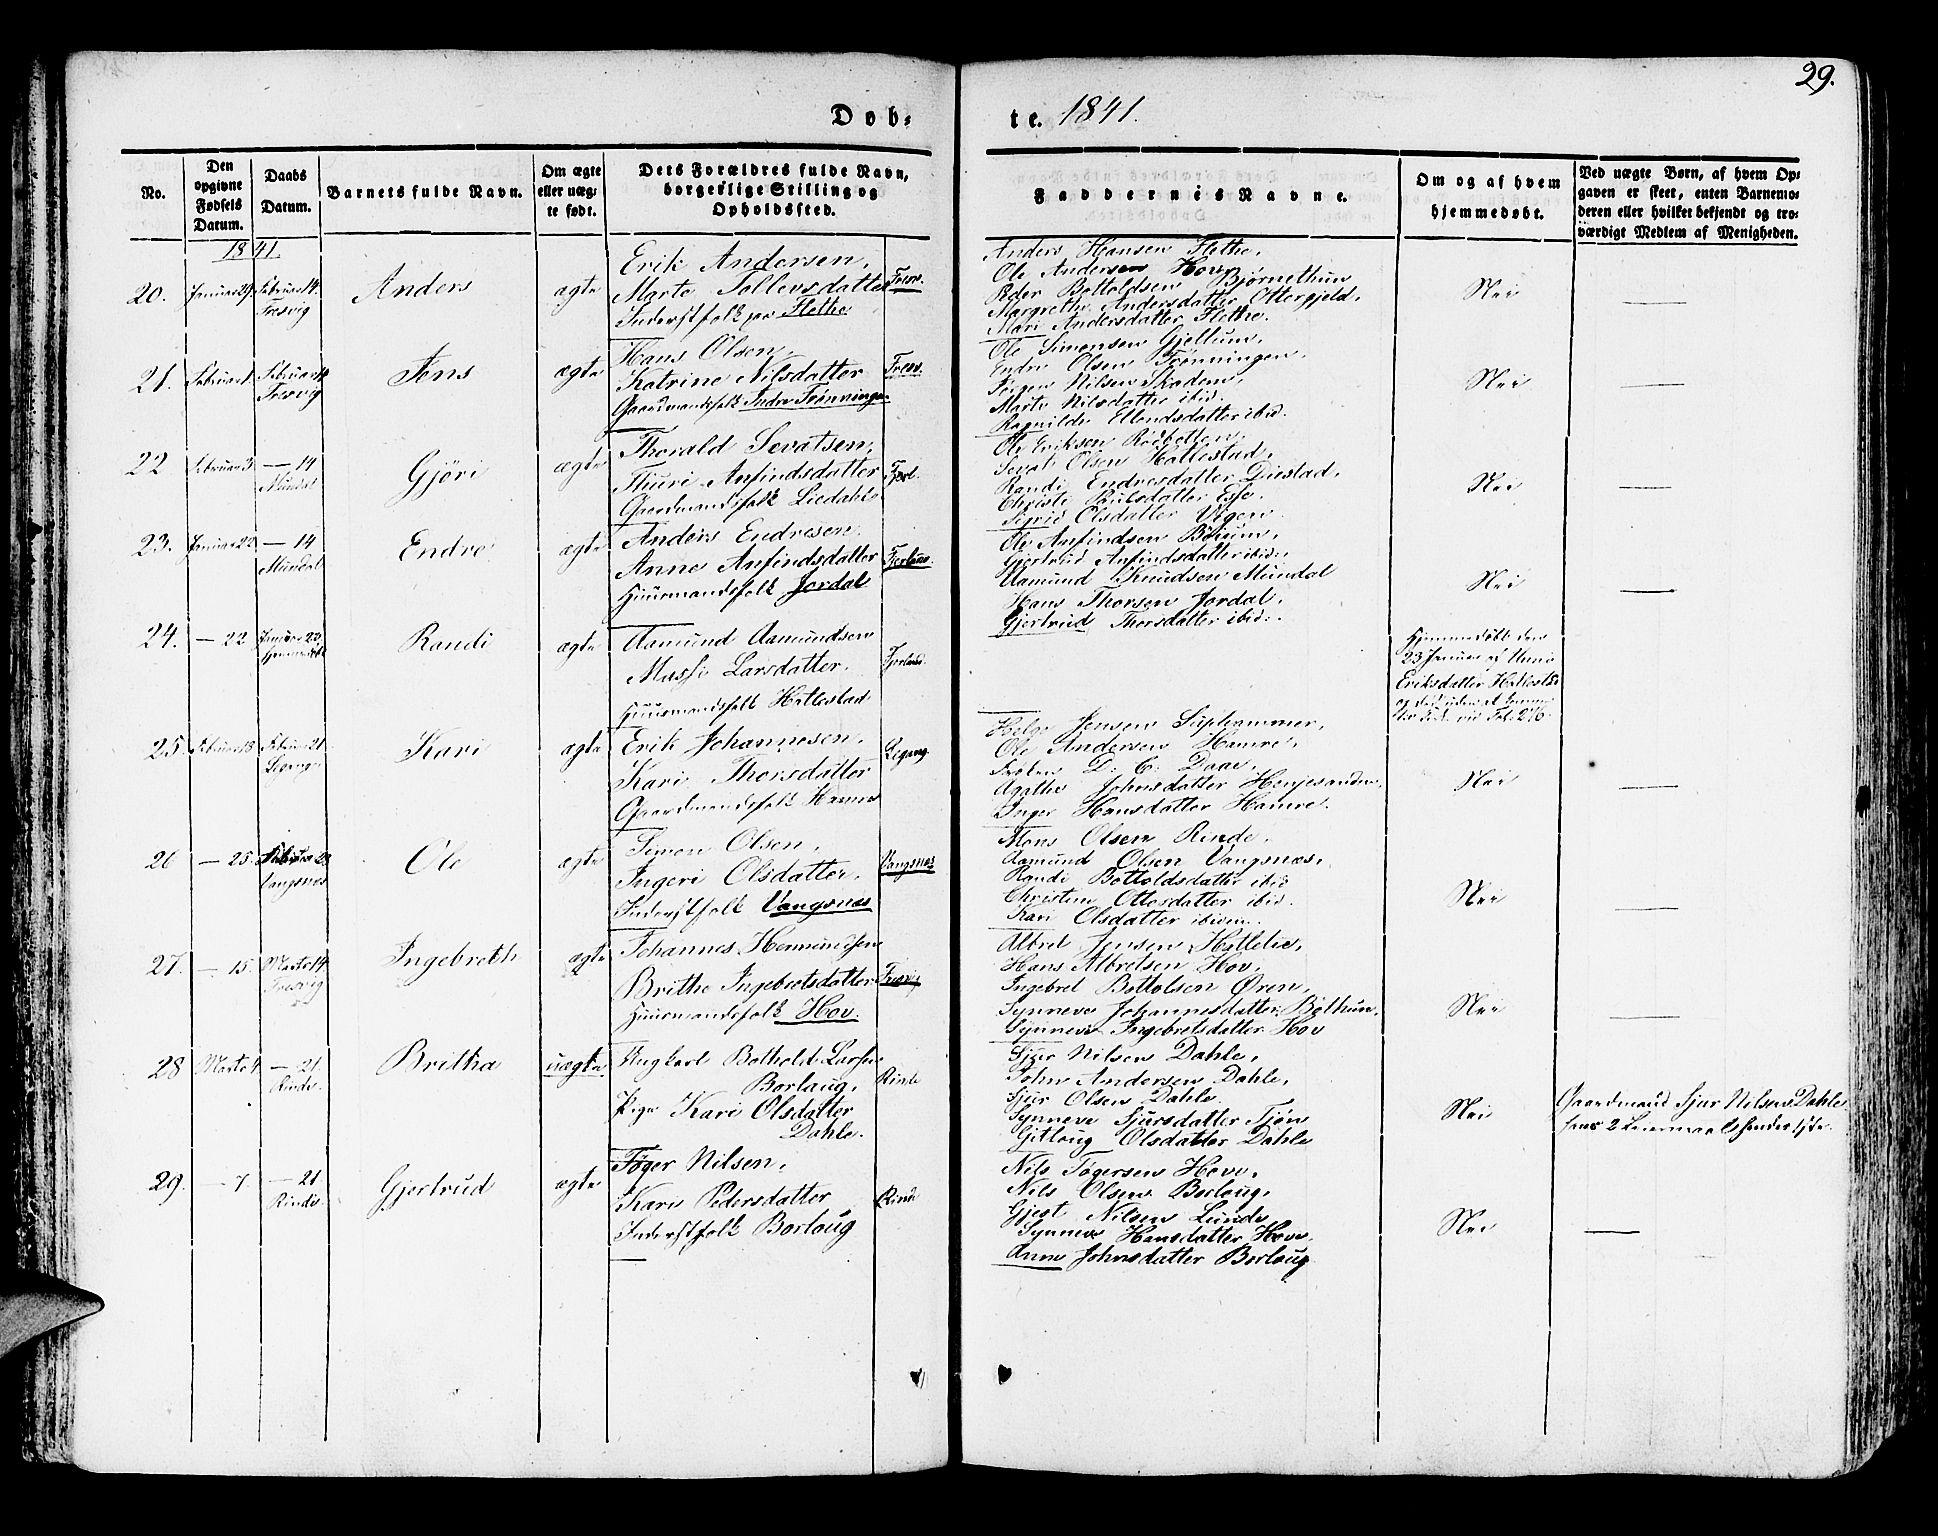 29.
Døb-
te. 1841.
No.
Den opgivne Fødsels Datum.
Daabs Datum.
Barnets fulde Navn.
Om ægte eller uæg- te født.
Dets Forældres fulde Navn, borgerlige Stilling og Opholdssted.
Faddernes Navne.
Om og af hvem hjemmedøbt.
Ved uægte Børn, af hvem Op- gaven er skeet, enten Barnemo- deren eller hvilket bekjendt og tro- værdigt Medlem af Menigheden.
1841.
20. Januar 29. Februar 14. Fresvig
Anders
ægte
Erik Andersen,
Marte Tollevsdatter
Inderstfolk paa Flethe
Fresv.
Anders Hansen Flethe,
Ole Andersen Hove
Peder Bottoldsen Bjørnethun
Margrethe Andersdatter Ottergjeld,
Mari Andersdatter Flethe.
Nei
21. Februar 1. Februar 14 Fresvig
Jens
ægte
Hans Olsen,
Katrine Nilsdatter
Gaardmandsfolk Indre Frønningen
Fresv.
Ole Simonsen Gjellum,
Endre Olsen Frønningen,
Jørgen Nilsen Skadem,
Marte Nilsdatter ibid.
Ragnilde Ellendsdatter ibid.
Nei
22 Februar 3. — 14 Mundal
Gjöri
ægte
Thorald Sevatsen,
Thuri Anfindsdatter
Gaardmandsfolk Liedahl
Fjerl.
Ole Eriksen Rødbotten
Sevat Olsen Hatlestad,
Randi Endresdatter Distad,
Christi Poulsdatter Esse,
Sigrid Olsdatter Vigen
Nei
23. Januar 22 — 14 Mundal
Endre
ægte
Anders Endresen,
Anne Anfindsdatter
Huusmandsfolk Jordal
Fjerland.
Ole Anfindsen Bøium,
Gjertrud Anfindsdatter ibid.
Aamund Knudsen Mundal
Hans Thorsen Jordal,
Gjertrud Thorsdatter ibid.
Nei
24. — 22 Januar 23. Hjemmedøbt
Randi
ægte
Aamund Aamundsen
Massi Larsdatter.
Huusmandsfolk Hatlestad
Fjerland.
Hjemmedøbt den
23 Januar af Anni
Eriksdatter Hatlestad
25. Februar 13 Februar 21
Kari
ægte
Erik Johannesen,
Kari Thorsdatter
Gaardmandsfolk Hamre
Legang.
Helge Jensen Suphammer,
Ole Andersen Hamre,
Frøken D: C: Daae,
Agathe Johnsdatter Henjesanden,
Inger Hansdatter Hamre.
Nei
26 — 25. Februar 28 Vangsnæs
Ole
ægte
Simon Olsen,
Ingeri Olsdatter,
Inderstfolk Vangsnæs
Vangsnæs
Mons Olsen Rinde,
Aamund Olsen Vangsnæs,
Randi Bottoldsdatter ibid
Christine Ottesdatter ibid.
Kari Olsdatter ibidem.
Nei
27. — 15. Marts 14. Fresvig
Ingebreth
ægte
Johannes Hermundsen
Brithe Ingebretsdatter
Huusmandsfolk Hov.
Fresvig
Albret Jensen Hatlelie,
Hans Albretsen Hov,
Ingebret Bottolsen Øren,
Synneve Johannesdatter Bøthun,
Synneve Ingebretsdatter Hov
Nei
28 Marts 4. — 21 Rinde.
Britha
uægte
Ungkarl Botholdt Larsen
Borlaug,
Pige Kari Olsdatter
Dahle.
Rinde
Sjur Nilsen Dahle,
John Andersen Dahle,
Sjur Olsen Dahle
Synneve Sjursdatter Tjøn
Gitloug Olsdatter Dahle
Nei
Gaardmand Sjur Nilsen Dahle
29. — 7. — 21 Rinde.
Gjertrud
ægte
Tøger Nilsen,
Kari Pedersdatter
Inderstfolk Borloug
Rinde
Nils Tøgersen Hove,
Nils Olsen Borloug,
Gjest Nilsen Lunde
Synneve Hansdatter Hove,
Anne Johnsdatter Borloug
Nei